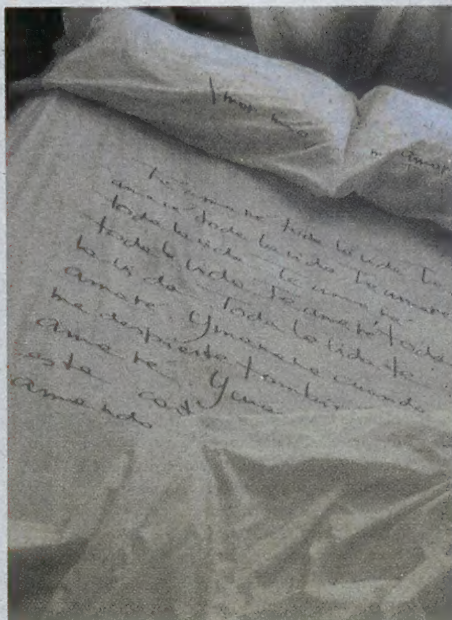 Amor mio
mi amor
te amare toda la vida te
amare toda la vida te amare
toda la vida te amare
toda la vida te amaré toda
la vida toda la vida te
amare Y mañana cuando
me despierte tambien
amare Y una
este
amando